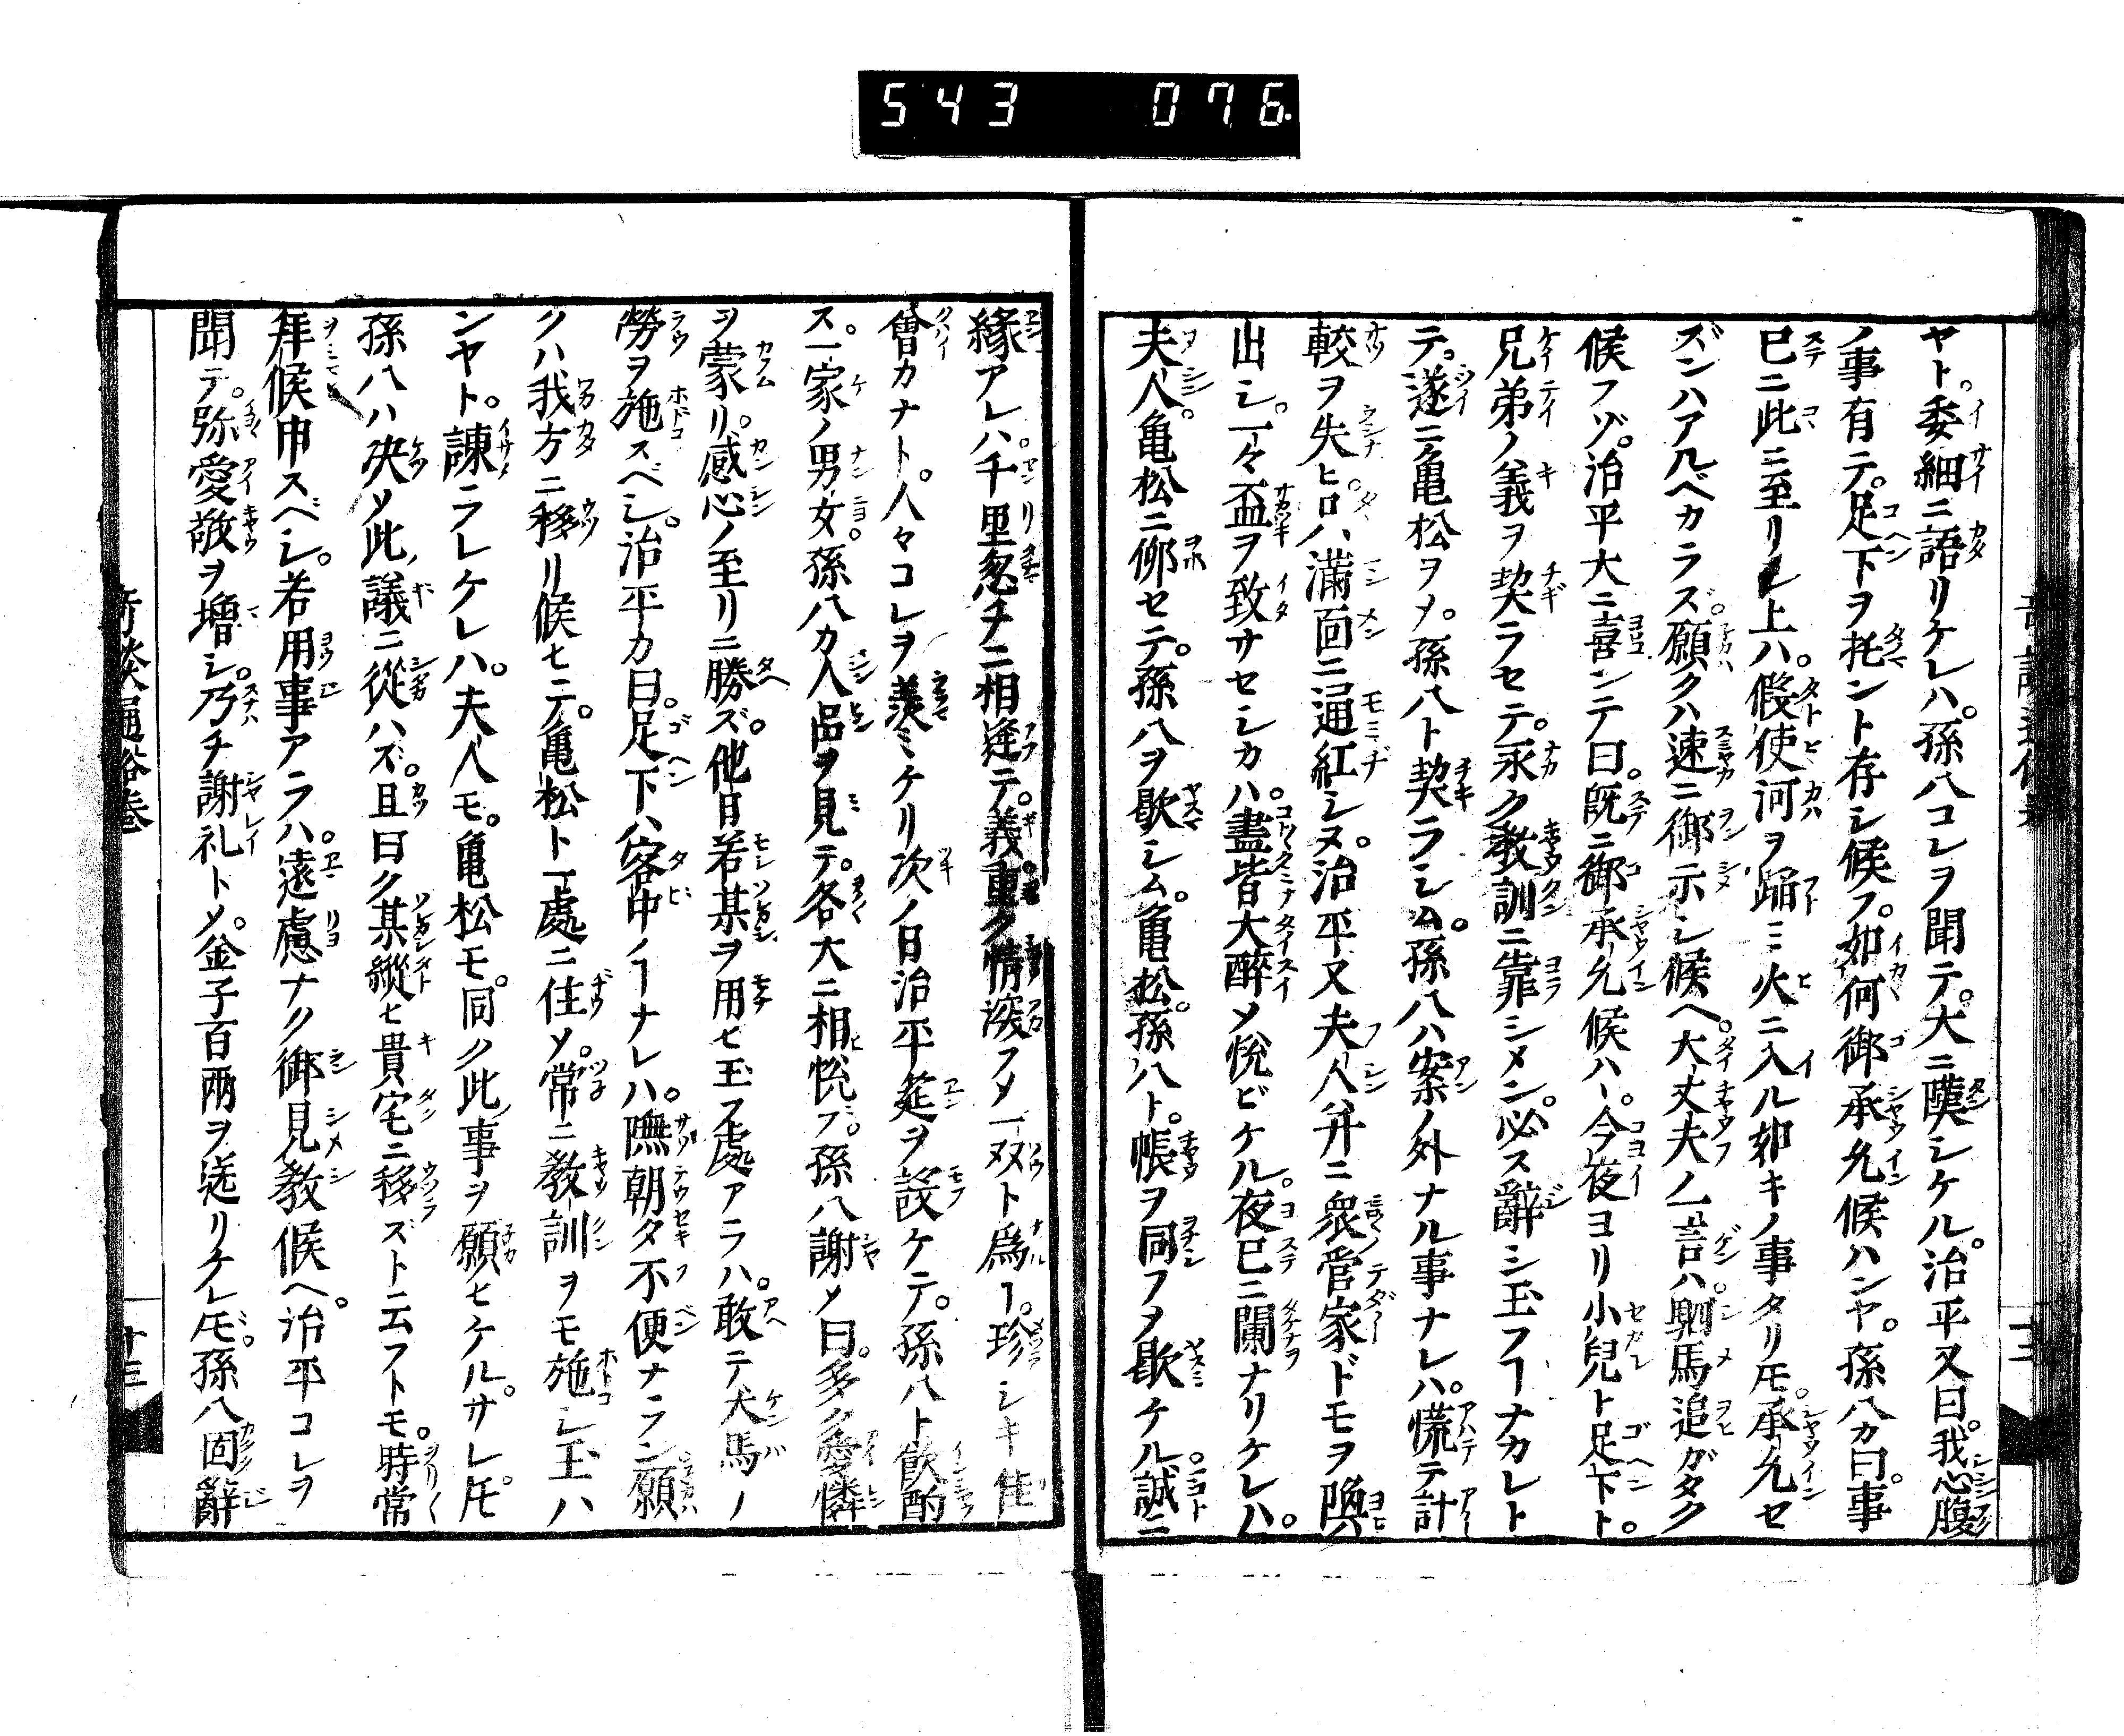 543 076
ヤト。委細ニ語リケレハ。孫八コレヲ聞テ。大ニ嘆シケル。治平又曰。我心腹
ノ事有テ。足下ヲ托ント存シ候フ。如何御承允候ハンヤ。孫八カ曰。事
已ニ此ニ至リシ上ハ。假使河ヲ踊ミ火ニ入ル如キノ事タリ𪜈。承允セ
ズンハアルベカラズ。願クハ速ニ御示シ候ヘ。大丈夫ノ一言ハ駟馬追ガタク
候フゾ。治平大ニ喜ンテ曰。既ニ御承允候ハヽ。今夜ヨリ小兒ト足下ト。
兄弟ノ義ヲ契ラセテ。永ク教訓ニ靠シメン。必ス辭シ玉フヿナカレト
テ。遂ニ亀松ヲメ。孫八ト契ラシム。孫八ハ案ノ外ナル事ナレハ。慌テ計
較ヲ失ヒ。只ハ滿面ニ通紅シヌ。治平又夫人并ニ衆管家ドモヲ喚ヒ
出シ。一々盃ヲ致サセシカハ。盡皆大醉メ悦ビケル。夜已ニ闌ナリケレハ。
夫人。亀松ニ郷セテ。孫八ヲ歇シム。亀松。孫八ト。帳ヲ同フメ歇ケル。誠ニ
縁アレハ千里忽チニ相逢テ。義重ク情深フメ一双ト為ヿ。珍シキ佳
會カナト。人々コレヲ羨ミケリ次ノ日治平莚ヲ設ケテ。孫八ト飲酌
ス。一家ノ男女。孫八カ人品ヲ見テ。各大ニ相悦フ。孫八謝メ曰。多ク愛憐
ヲ蒙リ。感心ノ至リニ勝ズ。他日若某ヲ用ヒ玉フ處アラハ。敢テ犬馬ノ
勞ヲ施スベシ。治平カ曰。足下ハ客中ノヿナレハ。嘸朝夕不便ナラン。願
クハ我方ニ移リ候ヒテ。亀松ト一處ニ住メ。常ニ教訓ヲモ施シ玉ハ
ンヤト。諫ラレケレハ。夫人モ。亀松モ。同ク此事ヲ願ヒケル。サレ𪜈。
孫八ハ决メ此議ニ從ハズ。且曰ク某縱ヒ貴宅ニ移ズト云フトモ。時常
拜候申スベシ。若用事アラハ。遠慮ナク御見教候ヘ。治平コレヲ
聞テ。弥愛敬ヲ増シ。乃チ謝礼トメ。金子百兩ヲ送リケレ𪜈。孫八固辭
十三